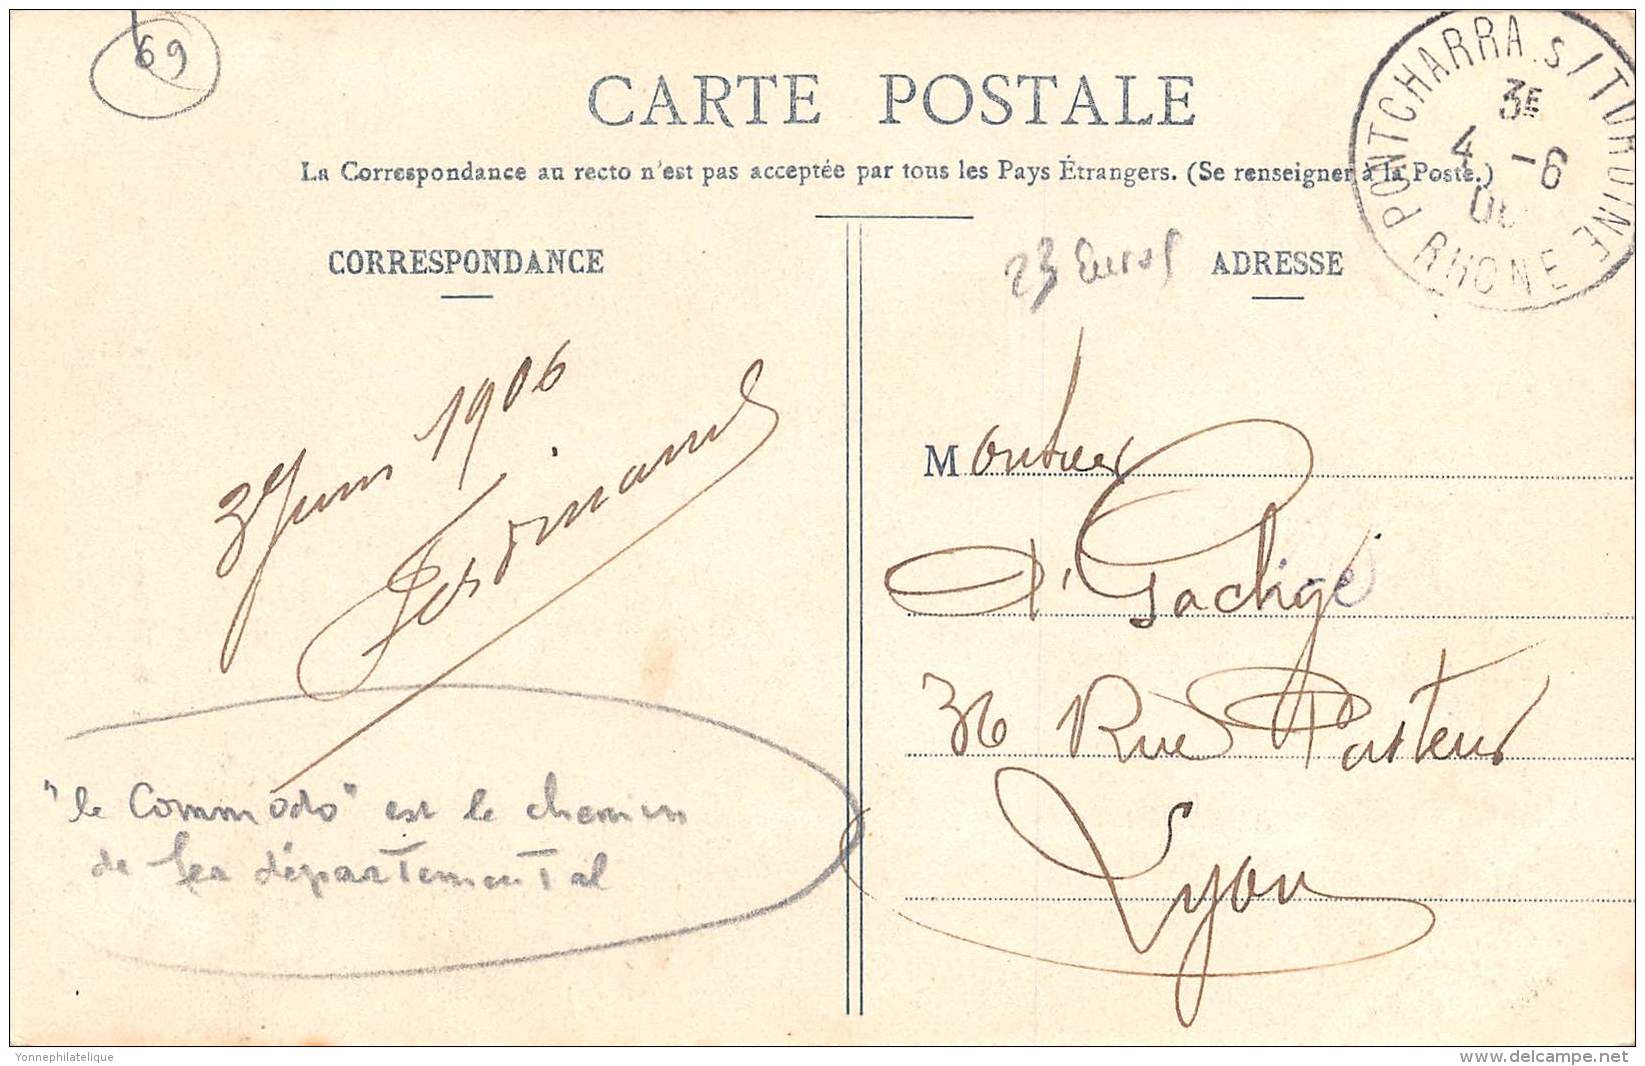 69
CARTE POSTALE
La Correspondance au recto n'est pas acceptée par tous les Pays Étrangers. (Se renseigner à la Poste.)
PONTCHARRA S/TURDINE
3E
4 -6
RHONE
CORRESPONDANCE
23 Euros
ADRESSE
3 Juin 1906
Ferdinand
Monsieur
A. Gachige
36 Rue Pasteur
Lyon
"le Commodo" est le chemin
de fer départemental
Yonnephilatelique
www.delcampe.net